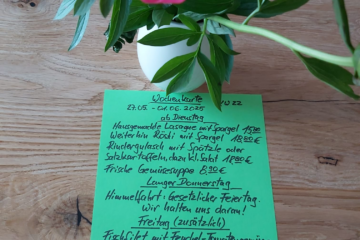 Wochenkarte
27.05 - 01.06.2025
ab Dienstag
Hausgemachte Lasagne mit Spargel
Weiterhin Rösti mit Spargel
Rindergulasch mit Spätzle oder
Salzkartoffeln, dazu kl. Salat
Frische Gemüsesuppe
Langer Donnerstag
Himmelfahrt: Gesetzlicher Feiertag.
Wir halten uns daran!
Freitag (zusätzlich)
Fischfilet mit